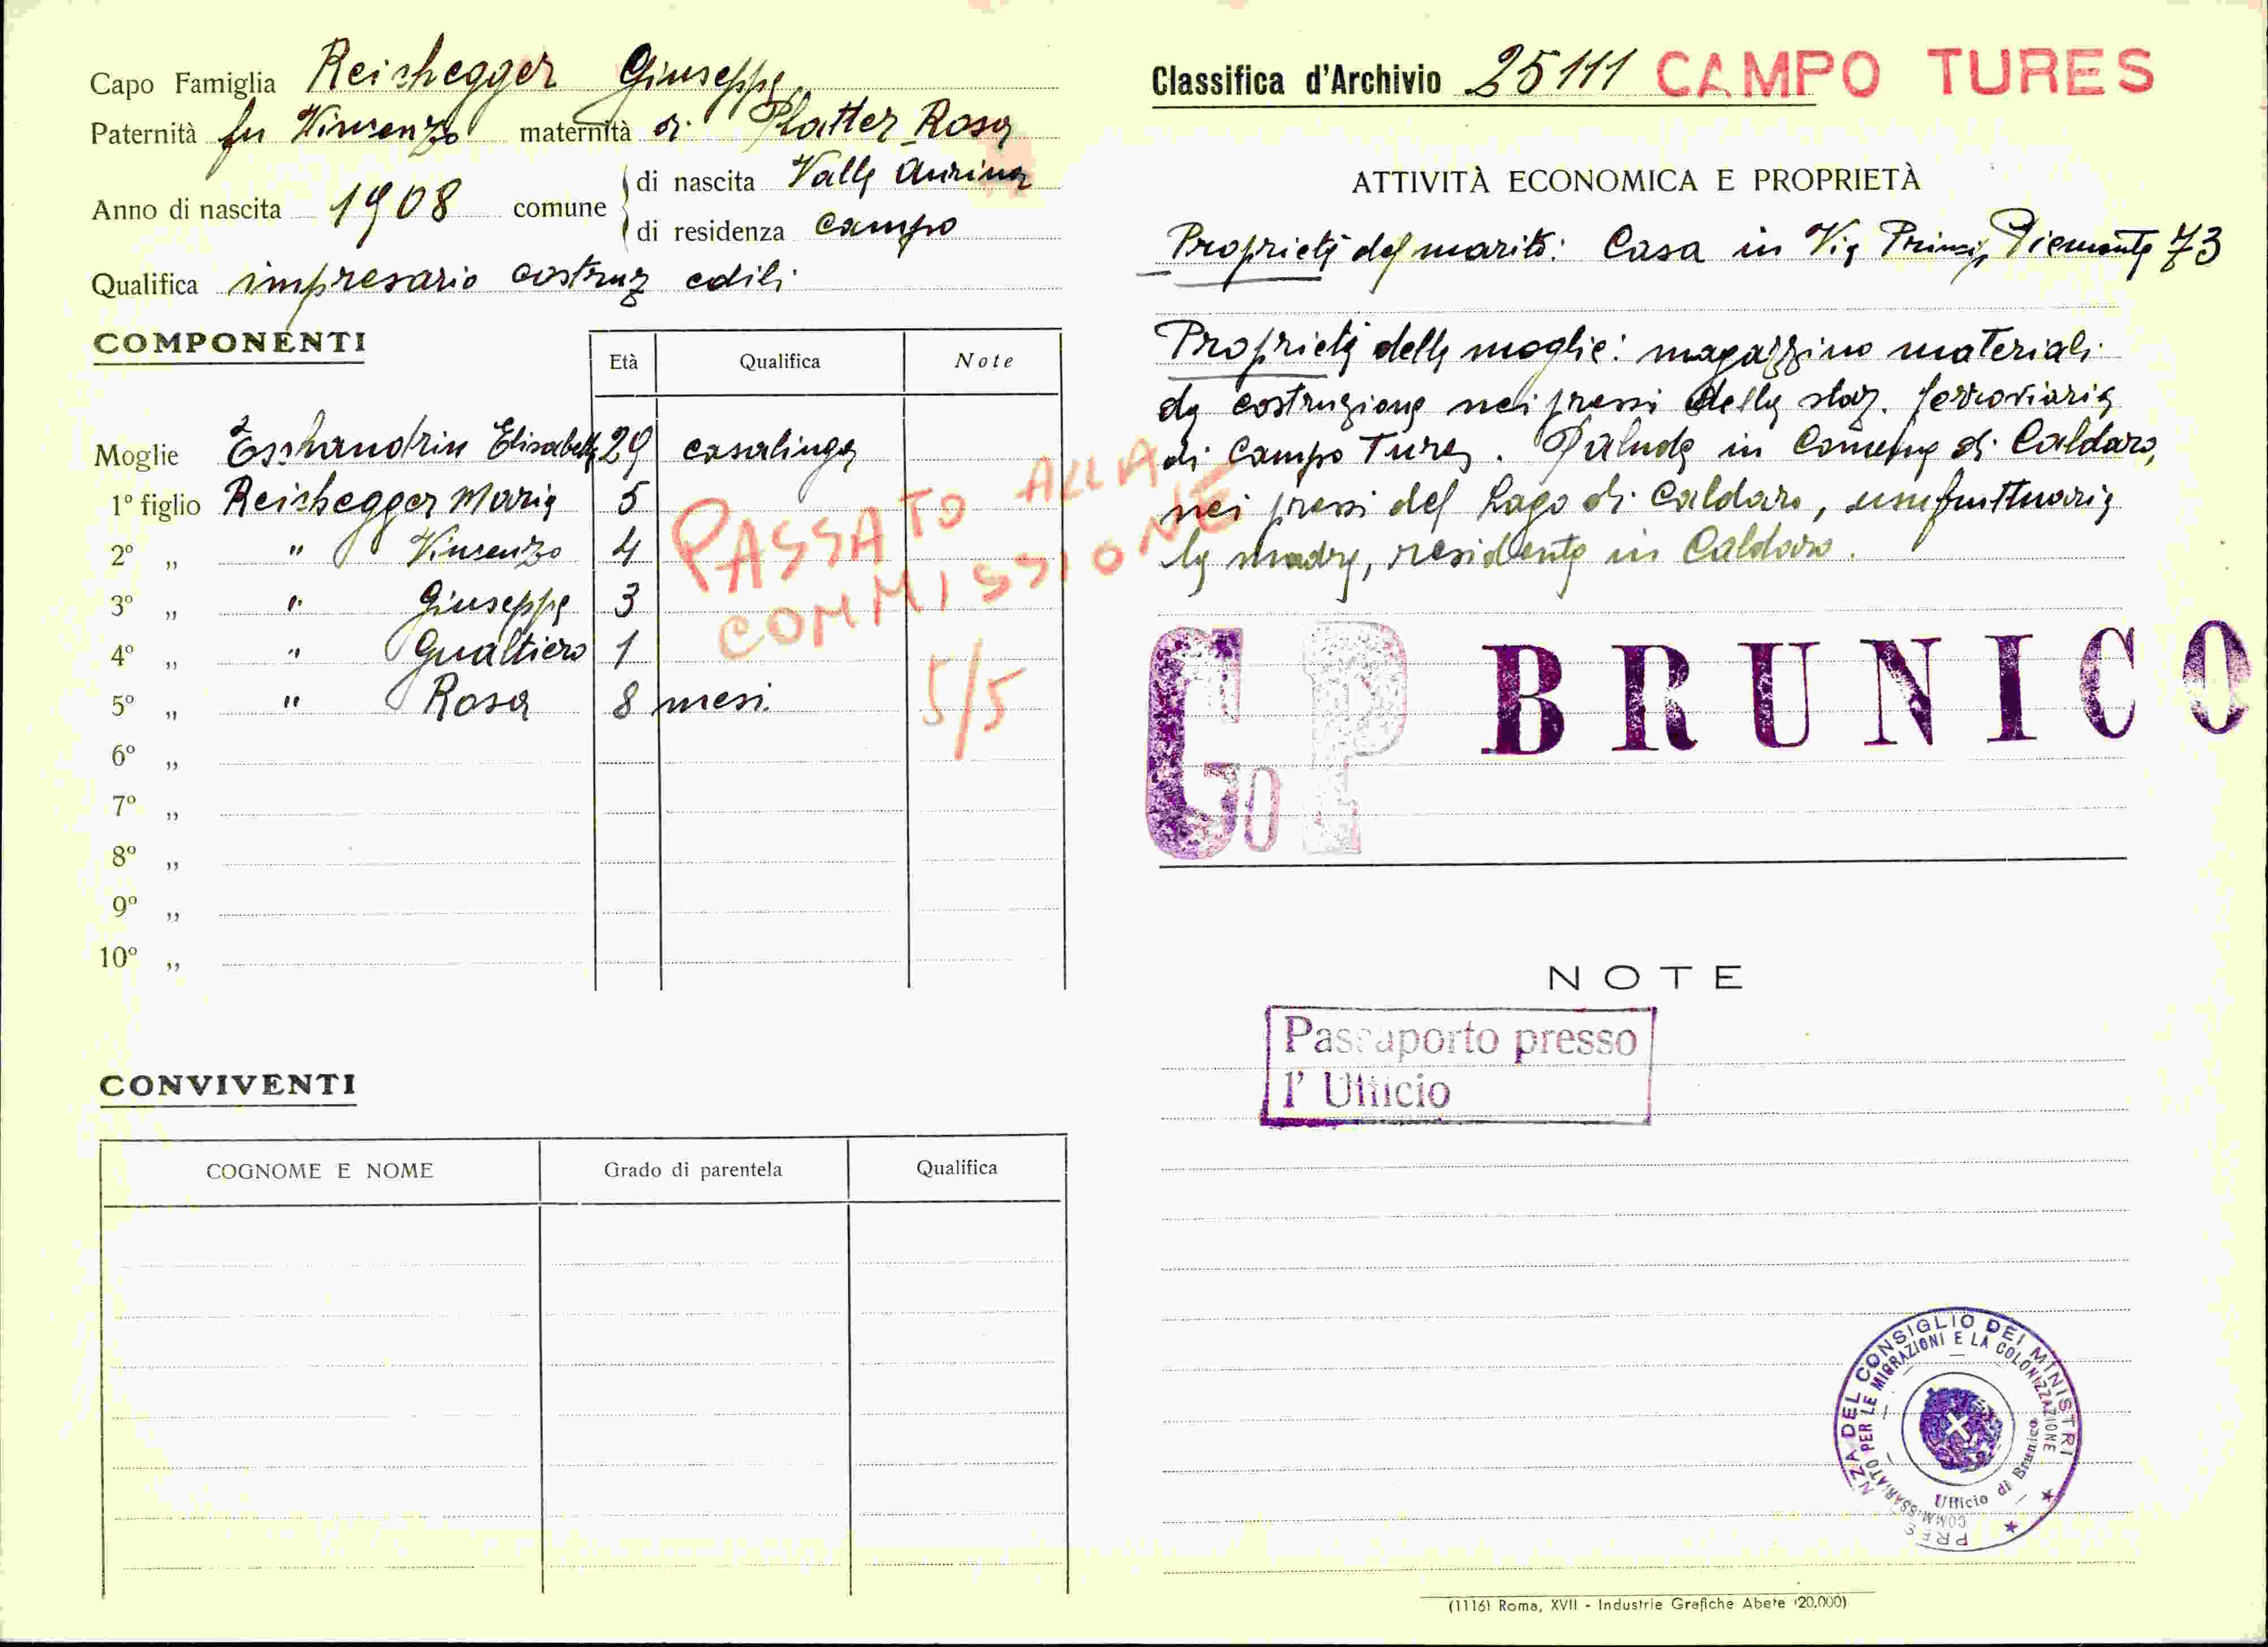 Capo Famiglia Reichegger Giuseppe
Paternità fu Vincenzo maternità di Platter Rosa
Anno di nascita 1908 comune di nascita Valle Aurina
di residenza Campo
Qualifica impresario costruz edili
COMPONENTI
Età Qualifica Note
Moglie Elisabetta 29 casalinga
1º figlio Reichegger Maria 5
2º „ " Vincenzo 4
3º „ " Giuseppe 3
4º „ " Gualtiero 1
5º „ " Rosa 8 mesi
6º „
7º „
8º „
9º „
10º „
PASSATO ALLA
COMMISSIONE
5/5
CONVIVENTI
COGNOME E NOME Grado di parentela Qualifica
Classifica d'Archivio 25111 CAMPO TURES
ATTIVITÀ ECONOMICA E PROPRIETÀ
Proprietà del marito: Casa in Via Princ. Piemonte 73
Proprietà della moglie: magazzino materiali
da costruzione nei pressi della staz. ferroviaria
di Campo Tures. Palude in Comune di Caldaro,
nei pressi del Lago di Caldaro, usufruttuaria
la madre, residente in Caldaro.
BRUNICO
NOTE
Passaporto presso
l' Ufficio
PRES NZA DEL CONSIGLIO DEI MINISTRI
COMMISSARIATO PER LE MIGRAZIONI E LA COLONIZZAZIONE
Ufficio di Brunico
(1116) Roma, XVII - Industrie Grafiche Abete (20.000)